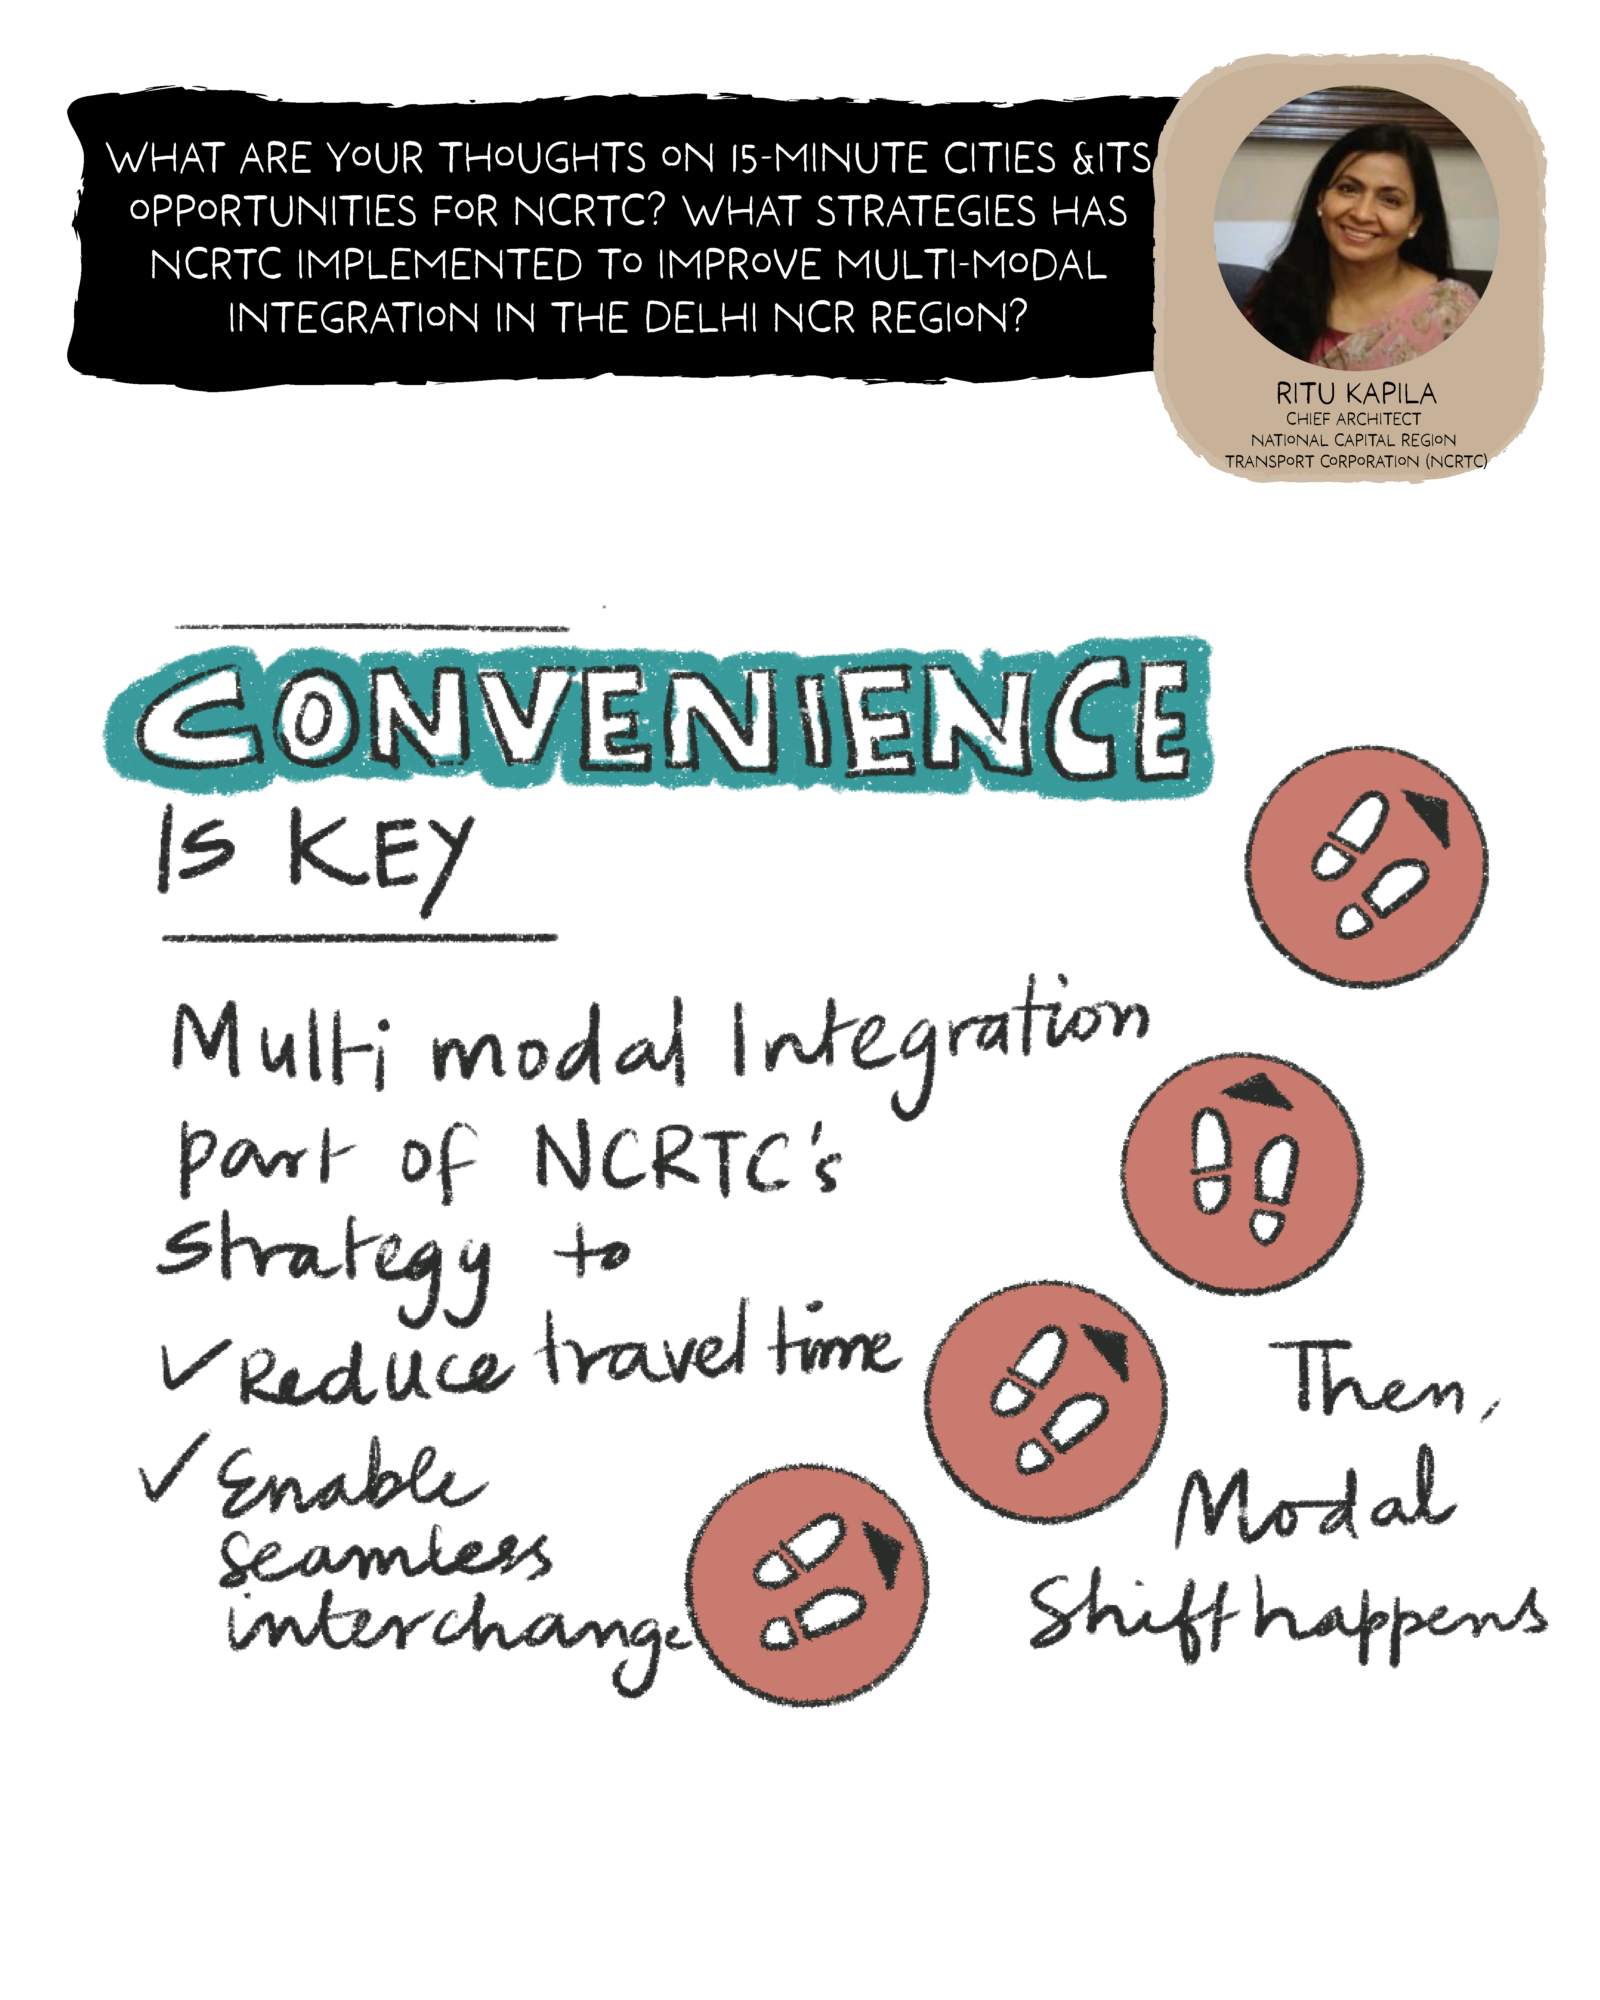 WHAT ARE YOUR THOUGHTS ON 15-MINUTE CITIES &ITS
OPPORTUNITIES FOR NCRTC? WHAT STRATEGIES HAS
NCRTC IMPLEMENTED TO IMPROVE MULTI-MODAL
INTEGRATION IN THE DELHI NCR REGION?
RITU KAPILA
CHIEF ARCHITECT
NATIONAL CAPITAL REGION
TRANSPORT CORPORATION (NCRTC)
CONVENIENCE
IS KEY
Multi modal Integration
part of NCRTC's
strategy to
✓ Reduce travel time
✓ Enable
seamless
interchange
Then,
Modal
Shift happens